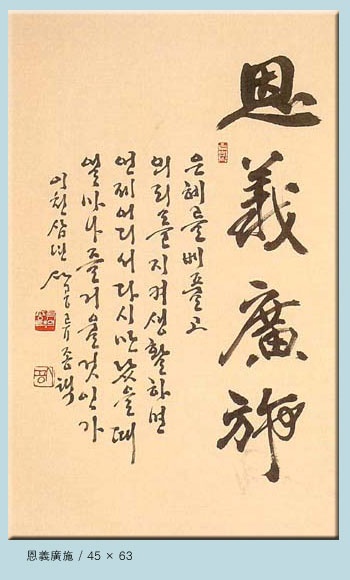 恩義廣施
은혜를 베풀고
의리를 지켜 생활하면
언제 어디서 다시 만났을 때
얼마나 즐거울 것인가
이천삼년
류종택
恩義廣施 / 45 × 63